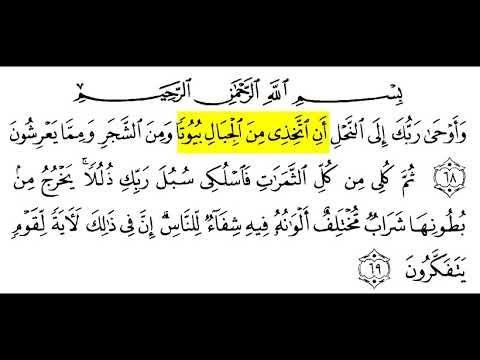 بِسْمِ ٱللَّهِ ٱلرَّحْمَٰنِ ٱلرَّحِيمِ
وَأَوْحَىٰ رَبُّكَ إِلَى ٱلنَّحْلِ أَنِ ٱتَّخِذِى مِنَ ٱلْجِبَالِ بُيُوتًا وَمِنَ ٱلشَّجَرِ وَمِمَّا يَعْرِشُونَ
٦٨ ثُمَّ كُلِى مِن كُلِّ ٱلثَّمَرَٰتِ فَٱسْلُكِى سُبُلَ رَبِّكِ ذُلُلًا ۚ يَخْرُجُ مِنۢ
بُطُونِهَا شَرَابٌ مُّخْتَلِفٌ أَلْوَٰنُهُۥ فِيهِ شِفَآءٌ لِّلنَّاسِ ۗ إِنَّ فِى ذَٰلِكَ لَـَٔايَةً لِّقَوْمٍ
يَتَفَكَّرُونَ ٦٩